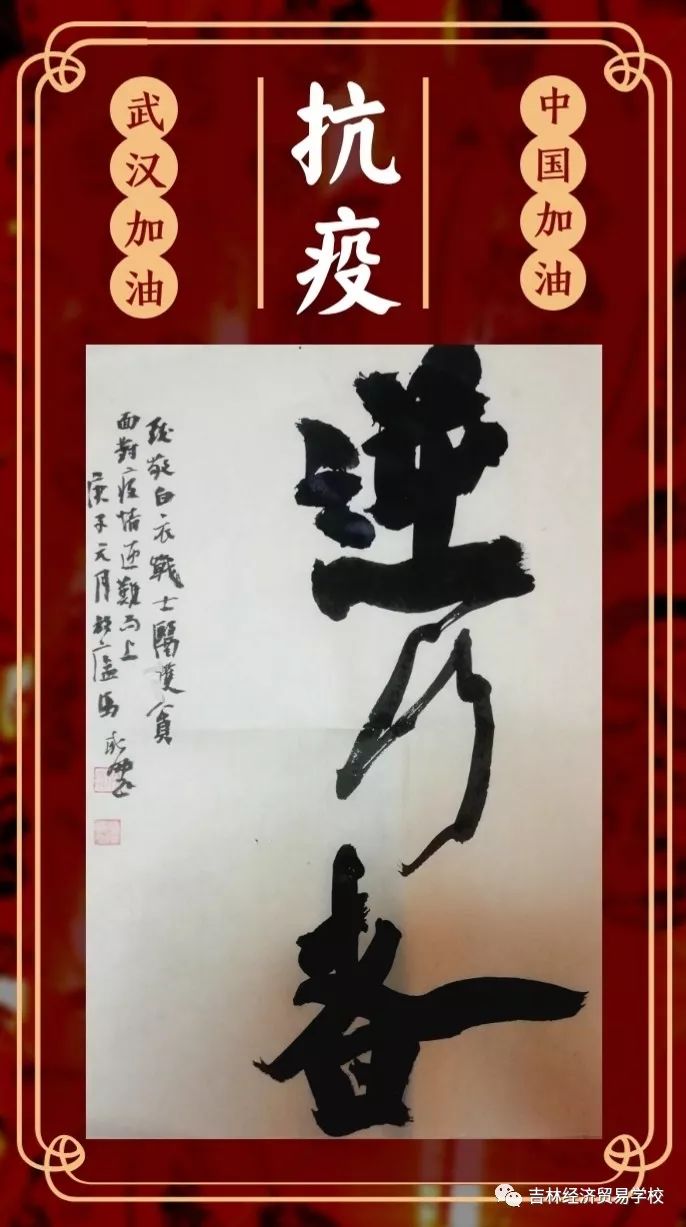 武汉加油
抗疫
中国加油
逆行者
致敬白衣戰士醫護員
面對疫情迎難而上
庚子元月於
吉林经济贸易学校